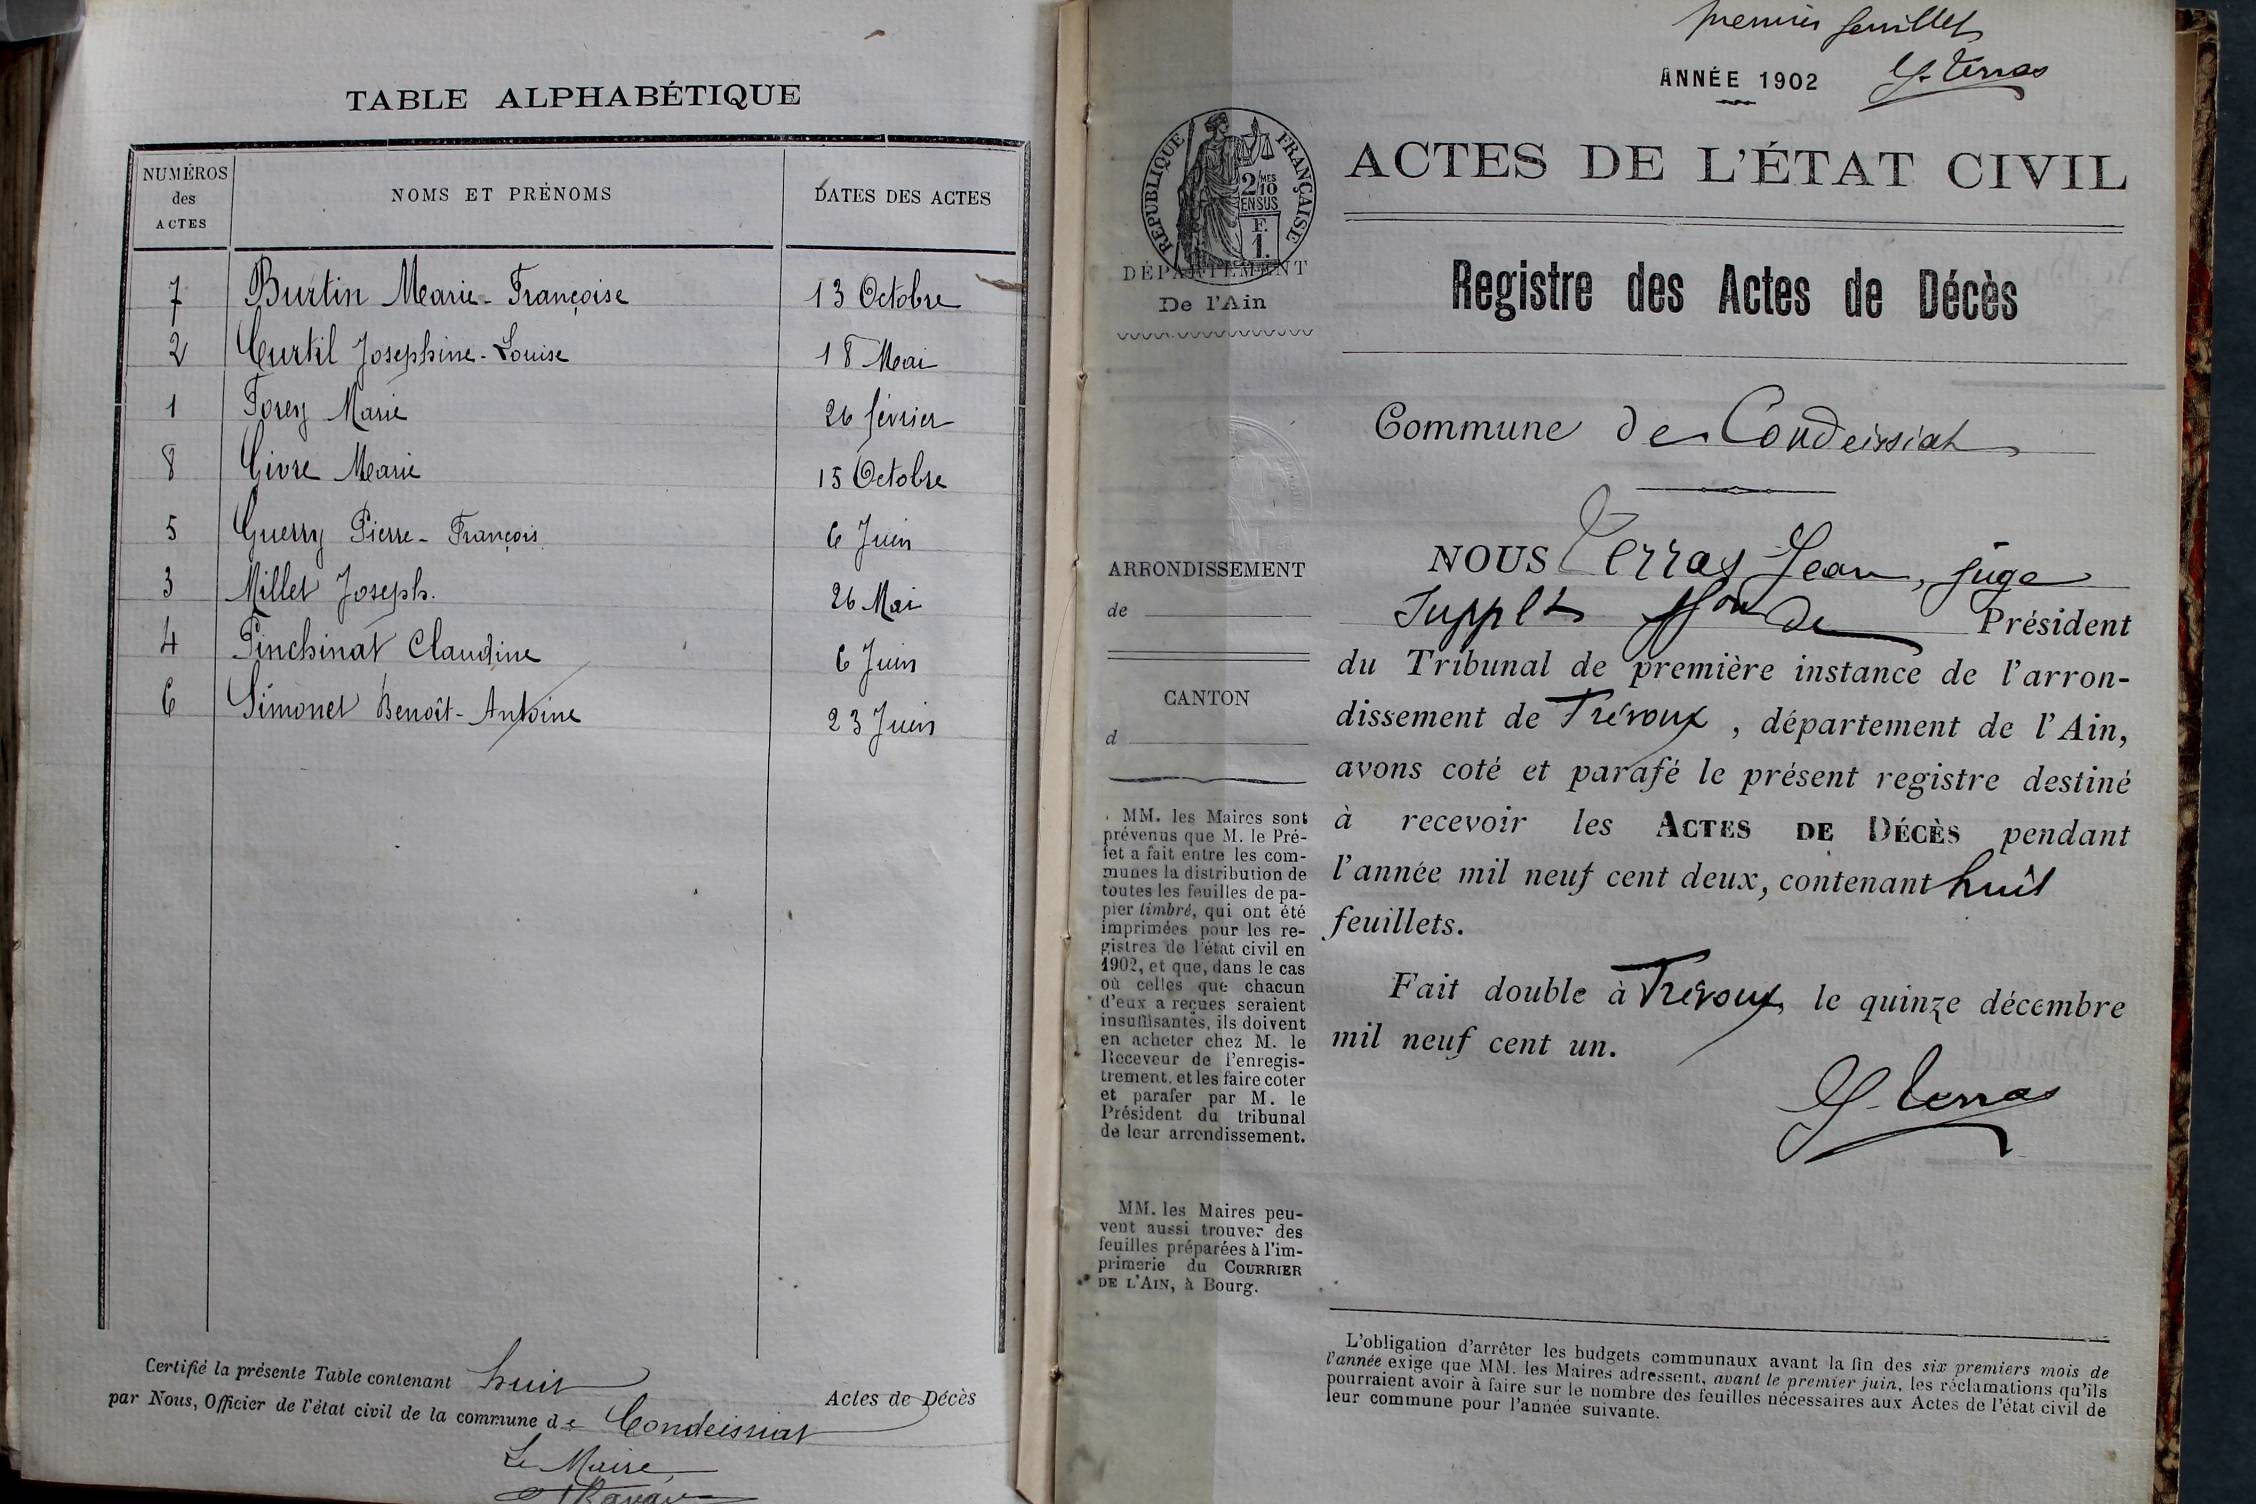 TABLE ALPHABÉTIQUE
NUMÉROS des ACTES NOMS ET PRÉNOMS DATES DES ACTES
7 Burtin Marie-Françoise 13 Octobre
2 Curtil Josephine-Louise 18 Mai
1 Forey Marie 26 février
8 Givre Marie 15 Octobre
5 Guerry Pierre-François 6 Juin
3 Millet Joseph. 26 Mai
4 Pinchinat Claudine 6 Juin
6 Simonet Benoît-Antoine 23 Juin
Certifié la présente Table contenant huit Actes de Décès
par Nous, Officier de l'état civil de la commune de Condeissiat
Le Maire
premier feuillet
ANNÉE 1902
J. Terras
RÉPUBLIQUE FRANÇAISE
2/10 MES
EN SUS
F.
1.
ACTES DE L'ÉTAT CIVIL
DÉPARTEMENT
De l'Ain
Registre des Actes de Décès
Commune de Condeissiat
ARRONDISSEMENT
de
CANTON
d
MM. les Maires sont
prévenus que M. le Pré-
fet a fait entre les com-
munes la distribution de
toutes les feuilles de pa-
pier timbré, qui ont été
imprimées pour les re-
gistres de l'état civil en
1902, et que, dans le cas
où celles que chacun
d'eux a reçues seraient
insuffisantes, ils doivent
en acheter chez M. le
Receveur de l'enregis-
trement, et les faire coter
et parafer par M. le
Président du tribunal
de leur arrondissement.
MM. les Maires peu-
vent aussi trouver des
feuilles préparées à l'im-
primerie du COURRIER
DE L'AIN, à Bourg.
NOUS Terras Jean, juge
supplt ffon de Président
du Tribunal de première instance de l'arron-
dissement de Trévoux, département de l'Ain,
avons coté et parafé le présent registre destiné
à recevoir les ACTES DE DÉCÈS pendant
l'année mil neuf cent deux, contenant huit
feuillets.
Fait double à Trévoux, le quinze décembre
mil neuf cent un.
J. Terras
L'obligation d'arrêter les budgets communaux avant la fin des six premiers mois de
l'année exige que MM. les Maires adressent, avant le premier juin, les réclamations qu'ils
pourraient avoir à faire sur le nombre des feuilles nécessaires aux Actes de l'état civil de
leur commune pour l'année suivante.